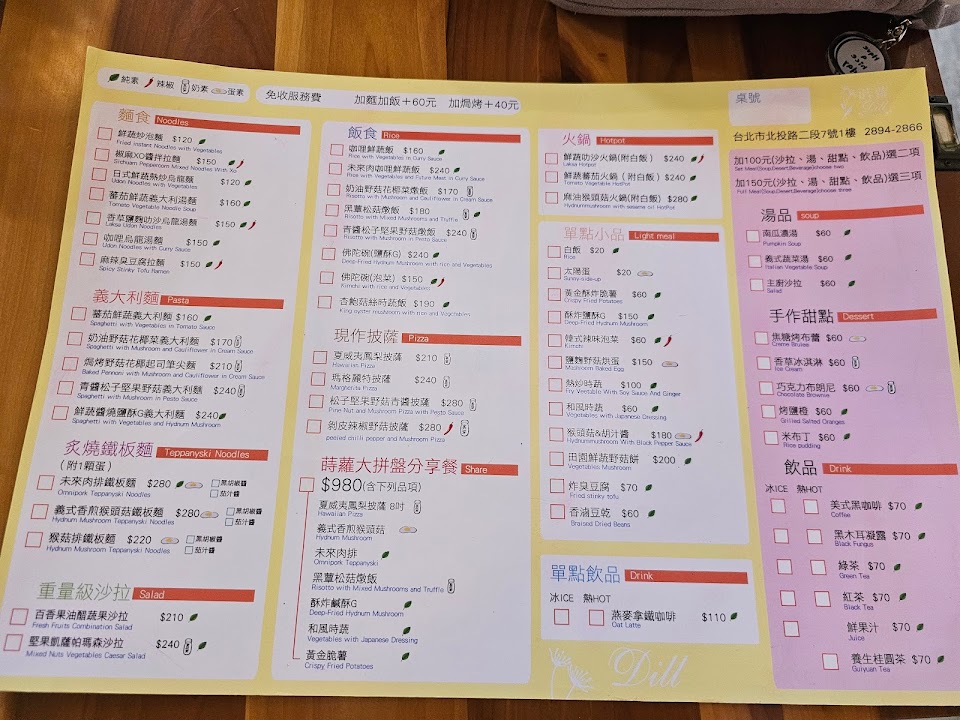 純素 辣椒 奶素 蛋素
免收服務費 加麵加飯+60元 加焗烤+40元
麵食 Noodles
鮮蔬炒泡麵 $120
Fried Instant Noodles with Vegetables
椒麻XO醬拌拉麵 $150
Sichuan Pepperroom Mixed Noodles With Xo
日式鮮蔬熱炒烏龍麵 $120
Udon Noodles with Vegetables
蕃茄鮮蔬義大利湯麵 $160
Tomato Vegetable Noodle Soup
香草鹽麴叻沙烏龍湯麵 $150
Laksa Udon Noodles
咖哩烏龍湯麵 $150
Udon Noodles with Curry Sauce
麻辣臭豆腐拉麵 $150
Spicy Stinky Tofu Ramen
義大利麵 Pasta
蕃茄鮮蔬義大利麵 $160
Spaghetti with Vegetables in Tomato Sauce
奶油野菇花椰菜義大利麵 $170
Spaghetti with Mushroom and Cauliflower in Cream Sauce
焗烤野菇花椰起司筆尖麵 $210
Baked Pennoni with Mushroom and Cauliflower in Cream Sauce
青醬松子堅果野菇義大利麵 $240
Spaghetti with Mushroom in Pesto Sauce
鮮蔬醬燒鹽酥G義大利麵 $240
Spaghetti with Vegetables and Hydnum Mushroom
炙燒鐵板麵 Teppanyski Noodles
(附1顆蛋)
未來肉排鐵板麵 $280 黑胡椒醬
Omnipork Teppanyski Noodles 茄汁醬
義式香煎猴頭菇鐵板麵 $280 黑胡椒醬
Hydnum Mushroom Teppanyski Noodles 茄汁醬
猴菇排鐵板麵 $220 黑胡椒醬
Hydnum Mushroom Teppanyski Noodles 茄汁醬
重量級沙拉 Salad
百香果油醋蔬果沙拉 $210
Fresh Fruits Combination Salad
堅果凱薩帕瑪森沙拉 $240
Mixed Nuts Vegetables Caesar Salad
飯食 Rice
咖哩鮮蔬飯 $160
Rice with Vegetables in Curry Sauce
未來肉咖哩鮮蔬飯 $240
Rice with Vegetables and Future Meat in Curry Sauce
奶油野菇花椰菜燉飯 $170
Risotto with Mushroom and Cauliflower in Cream Sauce
黑蕈松菇燉飯 $180
Risotto with Mixed Mushrooms and Truffle
青醬松子堅果野菇燉飯 $240
Risotto with Mushroom in Pesto Sauce
佛陀碗(鹽酥G) $240
Deep-Fried Hydnum Mushroom with rice and Vegetables
佛陀碗(泡菜) $150
Kimchi with rice and Vegetables
杏鮑菇絲時蔬飯 $190
King oyster mushroom with rice and Vegetables
現作披薩 Pizza
夏威夷鳳梨披薩 $210
Hawaiian Pizza
瑪格麗特披薩 $240
Margherita Pizza
松子堅果野菇青醬披薩 $280
Pine Nut and Mushroom Pizza with Pesto Sauce
剝皮辣椒野菇披薩 $280
peeled chilli pepper and Mushroom Pizza
蒔蘿大拼盤分享餐 Share
$980(含下列品項)
夏威夷鳳梨披薩 8吋
Hawaiian Pizza
義式香煎猴頭菇
Hydnum Mushroom
未來肉排
Omnipork Teppanyski
黑蕈松菇燉飯
Risotto with Mixed Mushrooms and Truffle
酥炸鹹酥G
Deep-Fried Hydnum Mushroom
和風時蔬
Vegetables with Japanese Dressing
黃金脆薯
Crispy Fried Potatoes
火鍋 Hotpot
鮮蔬叻沙火鍋(附白飯) $240
Laksa Hotpot
鮮蔬蕃茄火鍋(附白飯) $240
Tomato Vegetable HotPot
麻油猴頭菇火鍋(附白飯) $280
Hydnummushroom with sesame oil HotPot
單點小品 Light meal
白飯 $20
Rice
太陽蛋 $20
Sunny-side-up
黃金酥炸脆薯 $60
Crispy Fried Potatoes
酥炸鹽酥G $150
Deep-Fried Hydnum Mushroom
韓式辣味泡菜 $60
Kimchi
鹽麴野菇烘蛋 $150
Mushroom Baked Egg
熱炒時蔬 $100
Fry Veetable With Soy Sauce And Ginger
和風時蔬 $60
Vegetables with Japanese Dressing
猴頭菇&胡汁醬 $180
Hydnummushroom With Black Pepper Sauce
田園鮮蔬野菇餅 $200
Vegetables Mushroom
炸臭豆腐 $70
Fried stinky tofu
香滷豆乾 $60
Braised Dried Beans
單點飲品 Drink
冰ICE 熱HOT
燕麥拿鐵咖啡 $110
Oat Latte
Dill
桌號
台北市北投路二段7號1樓 2894-2866
加100元(沙拉、湯、甜點、飲品)選二項
Set Meal(Soup,Dessert,Beverage)choose two
加150元(沙拉、湯、甜點、飲品)選三項
Full Meal(Soup,Dessert,Beverage)choose three
湯品 soup
南瓜濃湯 $60
Pumpkin Soup
義式蔬菜湯 $60
Italian Vegetable Soup
主廚沙拉 $60
Salad
手作甜點 Dessert
焦糖烤布蕾 $60
Creme Brulee
香草冰淇淋 $60
Ice Cream
巧克力布朗尼 $60
Chocolate Brownie
烤鹽橙 $60
Grilled Salted Oranges
米布丁 $60
Rice pudding
飲品 Drink
冰ICE 熱HOT
美式黑咖啡 $70
Coffee
黑木耳凝露 $70
Black Fungus
綠茶 $70
Green Tea
紅茶 $70
Black Tea
鮮果汁 $70
Juice
養生桂圓茶 $70
Guiyuan Tea